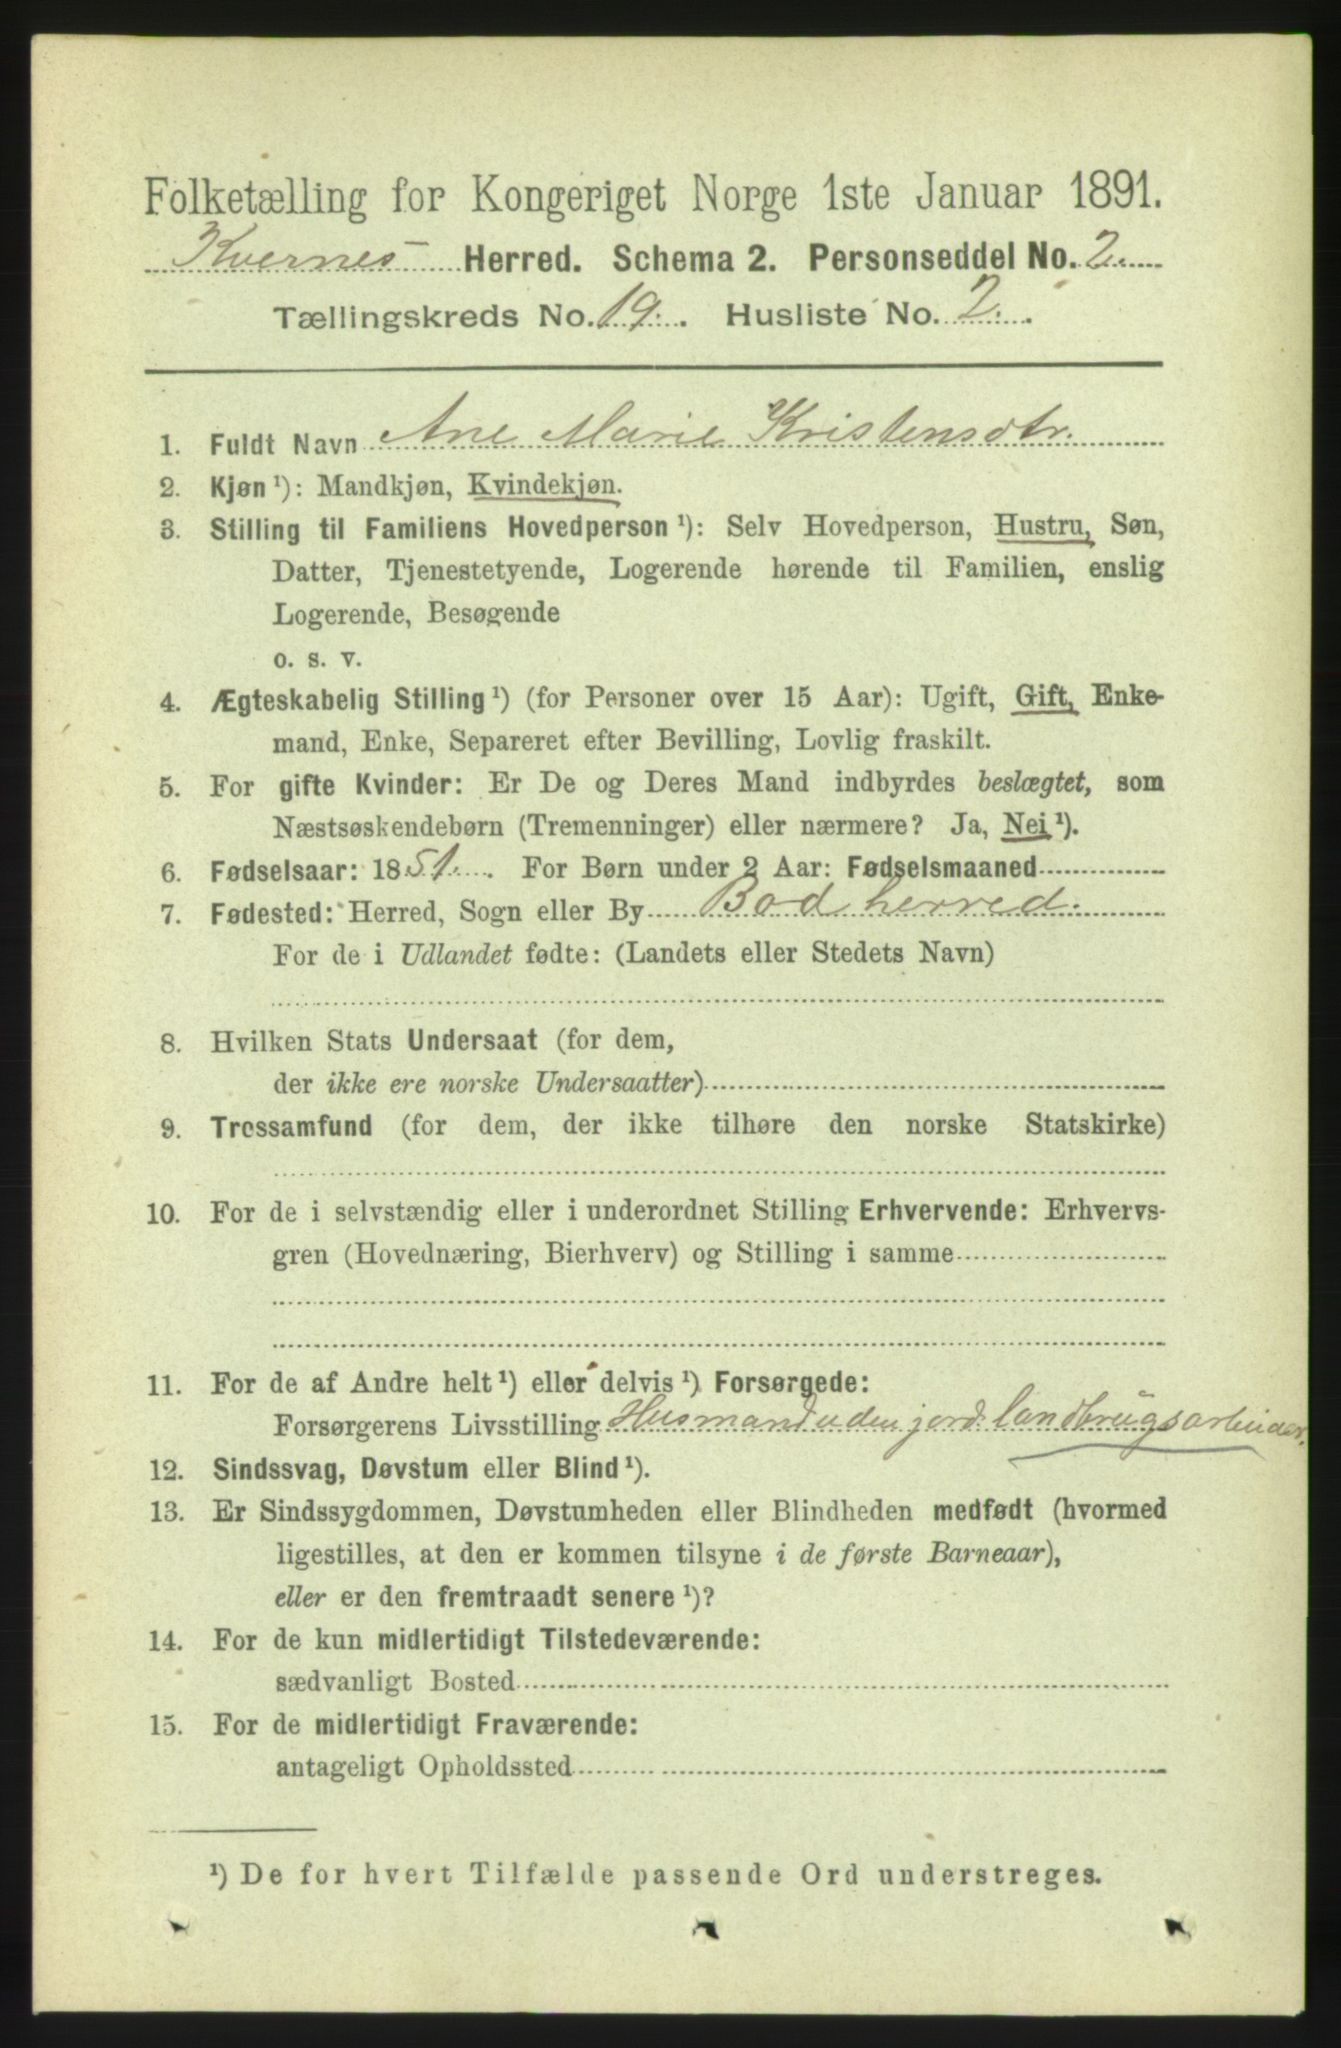 Folketælling for Kongeriget Norge 1ste Januar 1891.
Kvernes Herred. Schema 2. Personseddel No. 2.
Tællingskreds No. 19. Husliste No. 2.
1. Fuldt Navn Ane Marie Kristensdtr.
2. Kjøn ¹): Mandkjøn, Kvindekjøn.
3. Stilling til Familiens Hovedperson ¹): Selv Hovedperson, Hustru, Søn,
Datter, Tjenestetyende, Logerende hørende til Familien, enslig
Logerende, Besøgende
o. s. v.
4. Ægteskabelig Stilling ¹) (for Personer over 15 Aar): Ugift, Gift, Enke-
mand, Enke, Separeret efter Bevilling, Lovlig fraskilt.
5. For gifte Kvinder: Er De og Deres Mand indbyrdes beslægtet, som
Næstsøskendebørn (Tremenninger) eller nærmere? Ja, Nei ¹).
6. Fødselsaar: 1851. For Børn under 2 Aar: Fødselsmaaned
7. Fødested: Herred, Sogn eller By Bod herred.
For de i Udlandet fødte: (Landets eller Stedets Navn)
8. Hvilken Stats Undersaat (for dem,
der ikke ere norske Undersaatter)
9. Trossamfund (for dem, der ikke tilhøre den norske Statskirke)
10. For de i selvstændig eller i underordnet Stilling Erhvervende: Erhvervs-
gren (Hovednæring, Bierhverv) og Stilling i samme
11. For de af Andre helt ¹) eller delvis ¹) Forsørgede:
Forsørgerens Livsstilling Husmand uden jord. landbrugsarbeider.
12. Sindssvag, Døvstum eller Blind ¹).
13. Er Sindssygdommen, Døvstumheden eller Blindheden medfødt (hvormed
ligestilles, at den er kommen tilsyne i de første Barneaar),
eller er den fremtraadt senere ¹)?
14. For de kun midlertidigt Tilstedeværende:
sædvanligt Bosted
15. For de midlertidigt Fraværende:
antageligt Opholdssted
¹) De for hvert Tilfælde passende Ord understreges.